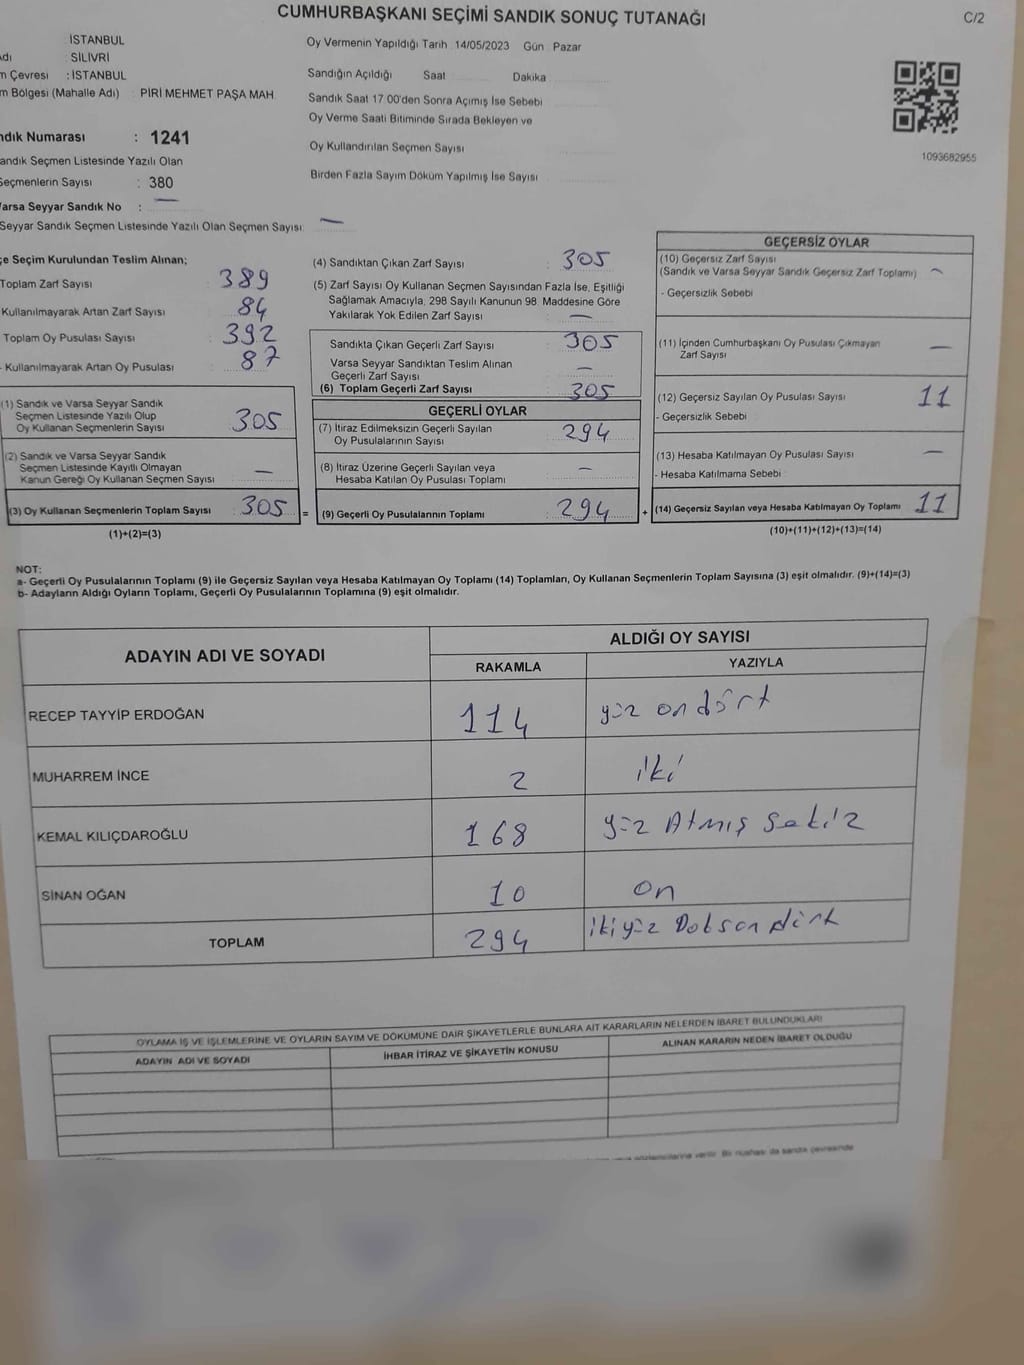 CUMHURBAŞKANI SEÇİMİ SANDIK SONUÇ TUTANAĞI
C/2
: İSTANBUL
: SİLİVRİ
Çevresi : İSTANBUL
Bölgesi (Mahalle Adı) : PİRİ MEHMET PAŞA MAH.
Oy Vermenin Yapıldığı Tarih : 14/05/2023 Gün : Pazar
Sandığın Açıldığı Saat Dakika
Sandık Saat 17:00'den Sonra Açılmış İse Sebebi
Oy Verme Saati Bitiminde Sırada Bekleyen ve
Oy Kullandırılan Seçmen Sayısı
Birden Fazla Sayım Döküm Yapılmış İse Sayısı
1093682955
Numarası : 1241
Seçmen Listesinde Yazılı Olan
Seçmenlerin Sayısı : 380
Varsa Seyyar Sandık No : —
Seyyar Sandık Seçmen Listesinde Yazılı Olan Seçmen Sayısı: —
Seçim Kurulundan Teslim Alınan;
Toplam Zarf Sayısı : 389
Kullanılmayarak Artan Zarf Sayısı : 84
Toplam Oy Pusulası Sayısı : 392
- Kullanılmayarak Artan Oy Pusulası : 87
(1) Sandık ve Varsa Seyyar Sandık
Seçmen Listesinde Yazılı Olup
Oy Kullanan Seçmenlerin Sayısı : 305
(2) Sandık ve Varsa Seyyar Sandık
Seçmen Listesinde Kayıtlı Olmayan
Kanun Gereği Oy Kullanan Seçmen Sayısı : —
(3) Oy Kullanan Seçmenlerin Toplam Sayısı : 305 =
(1)+(2)=(3)
(4) Sandıktan Çıkan Zarf Sayısı : 305
(5) Zarf Sayısı Oy Kullanan Seçmen Sayısından Fazla İse, Eşitliği
Sağlamak Amacıyla, 298 Sayılı Kanunun 98. Maddesine Göre
Yakılarak Yok Edilen Zarf Sayısı : —
Sandıkta Çıkan Geçerli Zarf Sayısı : 305
Varsa Seyyar Sandıktan Teslim Alınan
Geçerli Zarf Sayısı : —
(6) Toplam Geçerli Zarf Sayısı : 305
GEÇERLİ OYLAR
(7) İtiraz Edilmeksizin Geçerli Sayılan
Oy Pusulalarının Sayısı : 294
(8) İtiraz Üzerine Geçerli Sayılan veya
Hesaba Katılan Oy Pusulası Toplamı : —
(9) Geçerli Oy Pusulalarının Toplamı : 294 +
GEÇERSİZ OYLAR
(10) Geçersiz Zarf Sayısı
(Sandık ve Varsa Seyyar Sandık Geçersiz Zarf Toplamı) —
- Geçersizlik Sebebi
(11) İçinden Cumhurbaşkanı Oy Pusulası Çıkmayan
Zarf Sayısı —
(12) Geçersiz Sayılan Oy Pusulası Sayısı 11
- Geçersizlik Sebebi
(13) Hesaba Katılmayan Oy Pusulası Sayısı —
- Hesaba Katılmama Sebebi
(14) Geçersiz Sayılan veya Hesaba Katılmayan Oy Toplamı 11
(10)+(11)+(12)+(13)=(14)
NOT:
a- Geçerli Oy Pusulalarının Toplamı (9) ile Geçersiz Sayılan veya Hesaba Katılmayan Oy Toplamı (14) Toplamları, Oy Kullanan Seçmenlerin Toplam Sayısına (3) eşit olmalıdır. (9)+(14)=(3)
b- Adayların Aldığı Oyların Toplamı, Geçerli Oy Pusulalarının Toplamına (9) eşit olmalıdır.
ADAYIN ADI VE SOYADI
ALDIĞI OY SAYISI
RAKAMLA YAZIYLA
RECEP TAYYİP ERDOĞAN 114 yüz on dört
MUHARREM İNCE 2 iki
KEMAL KILIÇDAROĞLU 168 yüz Atmış sekiz
SİNAN OĞAN 10 on
TOPLAM 294 ikiyüz Doksan dört
OYLAMA İŞ VE İŞLEMLERİNE VE OYLARIN SAYIM VE DÖKÜMÜNE DAİR ŞİKAYETLERLE BUNLARA AİT KARARLARIN NELERDEN İBARET BULUNDUKLARI
ADAYIN ADI VE SOYADI İHBAR İTİRAZ VE ŞİKAYETİN KONUSU ALINAN KARARIN NEDEN İBARET OLDUĞU
verilir. Bir nüshası da sandık çevresinde